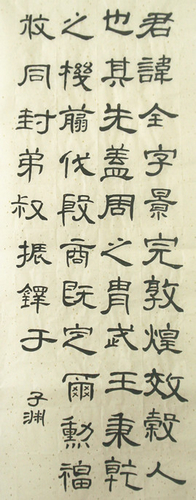 君諱全字景完敦煌效穀人
也其先蓋周之胄武王秉乾
之機翦伐殷商既定爾勳福
攸同封弟叔振鐸于
子渊